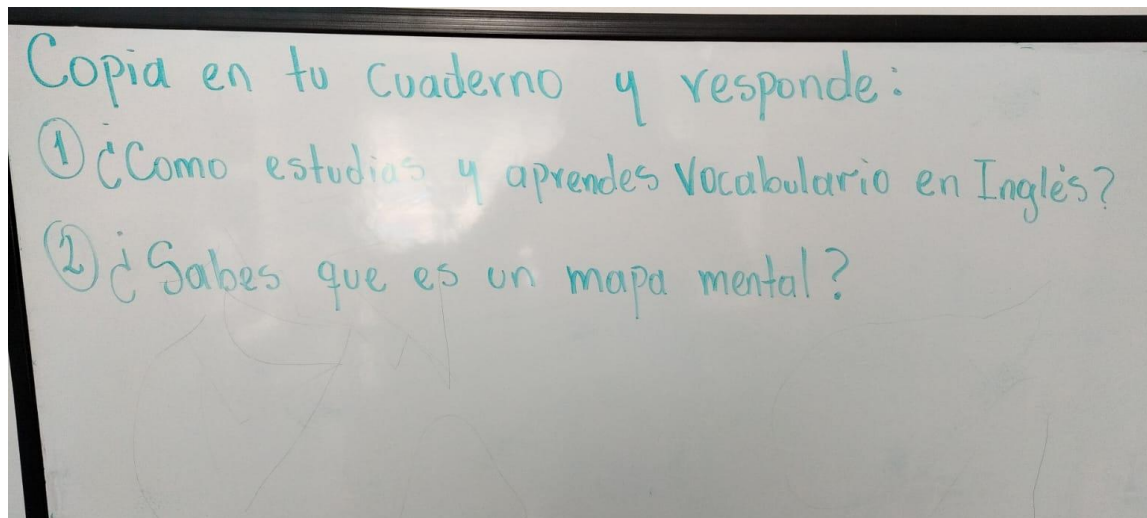 Copia en tu cuaderno y responde:
① ¿Como estudias y aprendes vocabulario en Inglés?
② ¿Sabes que es un mapa mental?